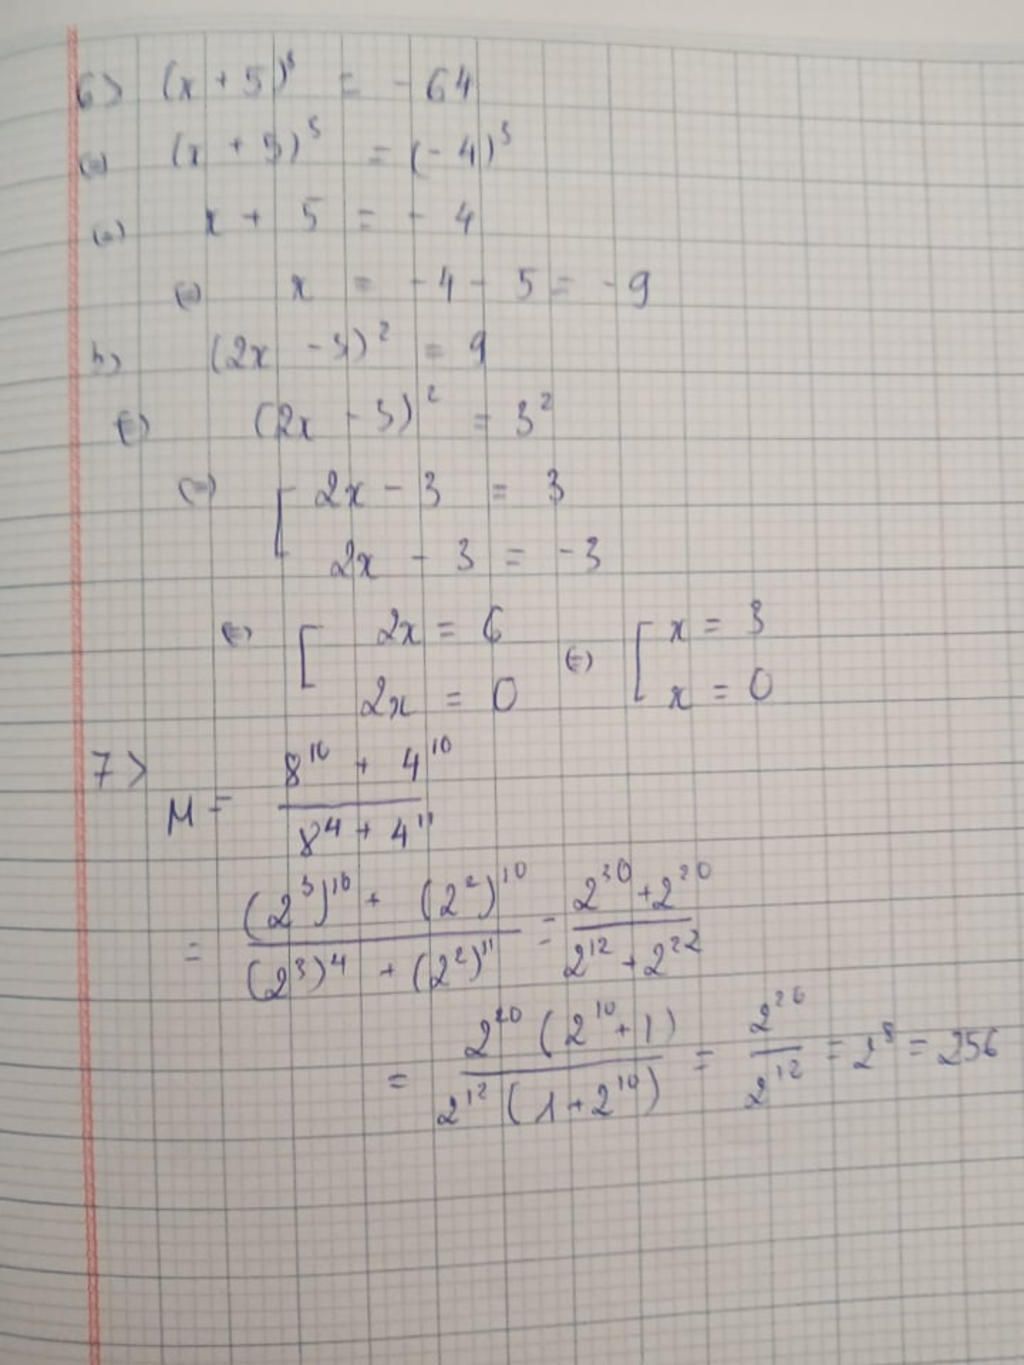 6> (x + 5)³ = - 64
(=) (x + 5)³ = (- 4)³
(=) x + 5 = - 4
(=) x = - 4 - 5 = - 9
b) (2x - 3)² = 9
(=) (2x - 3)² = 3²
(=) [ 2x - 3 = 3
2x - 3 = -3
(=) [ 2x = 6 (=) [ x = 3
2x = 0 x = 0
7> M = (8¹⁰ + 4¹⁰) / (8⁴ + 4¹¹)
= ((2³)¹⁰ + (2²)¹⁰) / ((2³)⁴ + (2²)¹¹) = (2³⁰ + 2²⁰) / (2¹² + 2²²)
= 2²⁰ (2¹⁰ + 1) / 2¹² (1 + 2¹⁰) = 2²⁰ / 2¹² = 2⁸ = 256